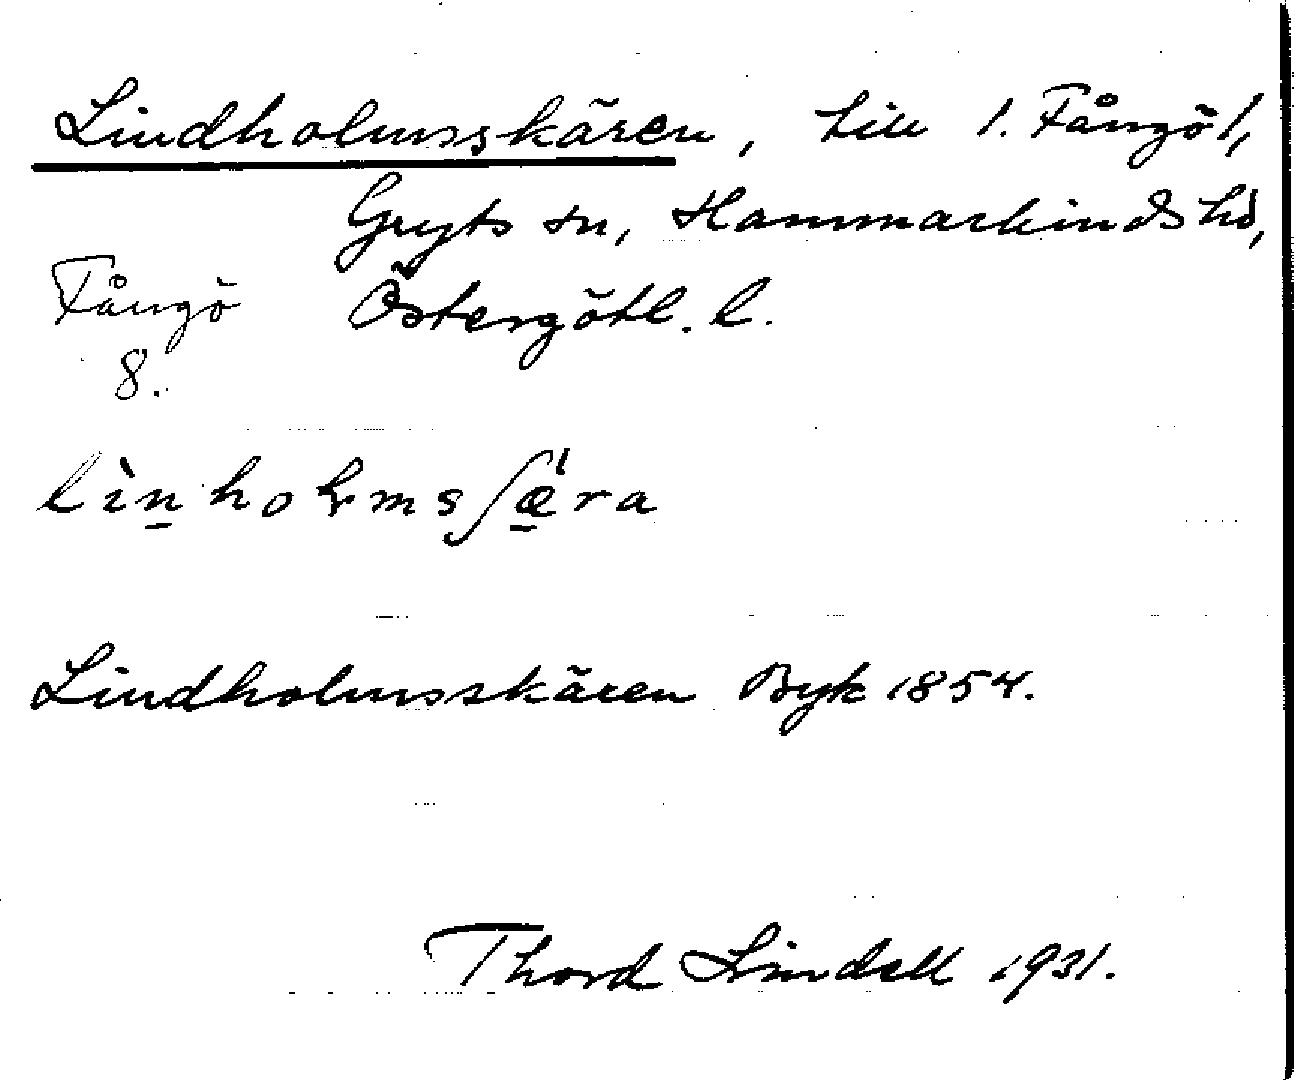 Lindholmsskären, till 1. Fångö 1,
Gryts sn, Hammarkinds hd,
Fångö Östergötl. l.
8.
lìn̲holmsʃæ̲̍ra
Lindholmsskären Byk 1854.
Thord Lindell 1931.